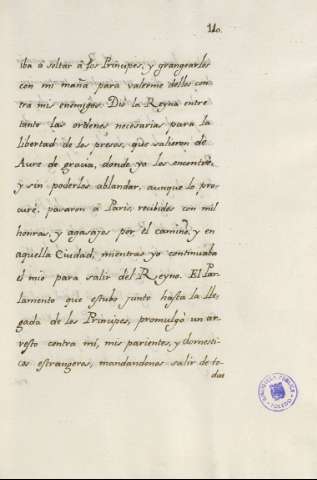 110.
iba à soltar à los Principes, y grangearles
con mi maña para valerme dellos con
tra mis enemigos. Diò la Reyna entre
tanto las ordenes necesarias para la
libertad de los presos, que salieron de
Aure de gracia, donde yo los encontrè,
y sin poderlos ablandar, aunque lo pro
curè, pasaron à Paris, recibidos con mil
honras, y agasajos por el camino, y en
aquella Ciudad, mientras yo continuaba
el mio para salir del Reyno. El Par
lamento que estubo junto hasta la lle
gada de los Principes, promulgò un ar
resto contra mi, mis parientes, y domesti
cos estrangeros, mandandonos salir de to
dos
BIBLIOTECA PUBLICA
TOLEDO